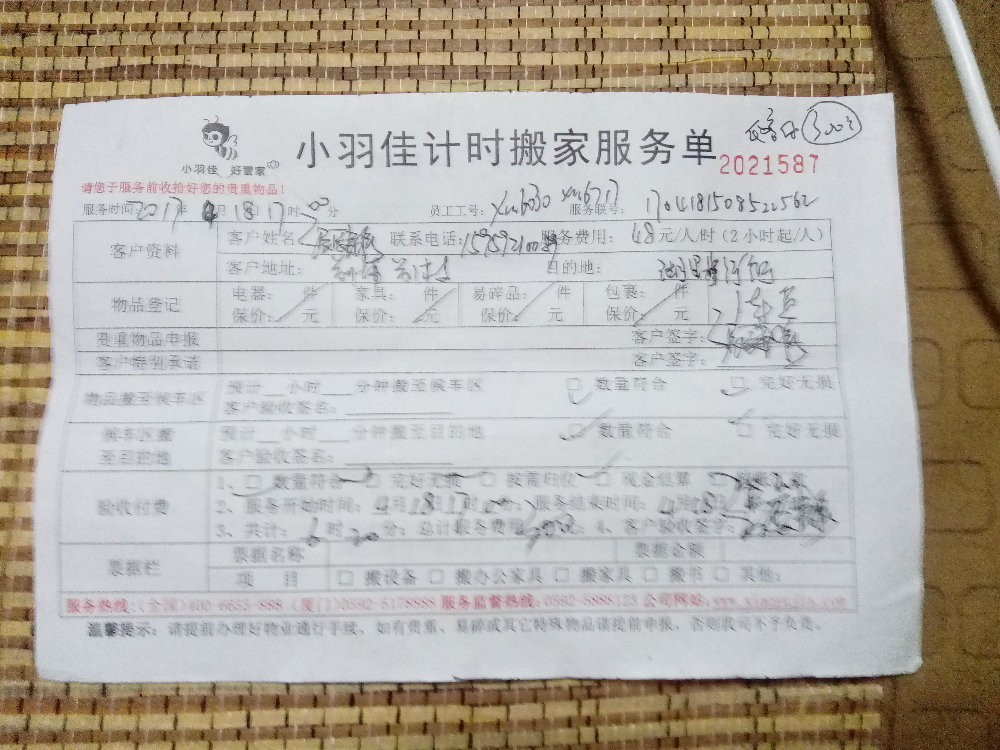 小羽佳 好管家
小羽佳计时搬家服务单
300元
2021587
请您于服务前收拾好您的贵重物品!
服务时间 2017年4月18日17时00分 员工工号: xm6030 xm6717 服务联号: 170418150852
客户资料 客户姓名: 联系电话: 服务费用: 48元/人/时(2小时起/人)
客户地址: 目的地:
物品登记 电器: 件 家具: 件 易碎品: 件 包裹: 件 1车
保价: 元 保价: 元 保价: 元 保价: 元
贵重物品申报 客户签字:
客户特别承诺 客户签字:
物品搬至候车区 预计__小时___分钟搬至候车区 □ 数量符合 □ 完好无损
客户验收签名:
候车区搬至目的地 预计__小时___分钟搬至目的地 □ 数量符合 □ 完好无损
客户验收签名:
验收付费 1、□ 数量符合 □ 完好无损 □ 按需归位 □ 现金结算
2、服务开始时间: 4月18日17时 分; 服务结束时间: 4月18日
3、共计: 6时20分; 总计服务费用 元; 4、客户验收签字:
票据栏 票据名称 票据金额
项 目 □ 搬设备 □ 搬办公家具 □ 搬家具 □ 搬书 □ 其他:
服务热线:(全国)400-6655-888 (厦门)0592-5178888 服务监督热线:0592-5888123 公司网站:
温馨提示: 请提前办理好物业通行手续, 如有贵重、易碎或其它特殊物品请提前申报, 否则我司不予负责。